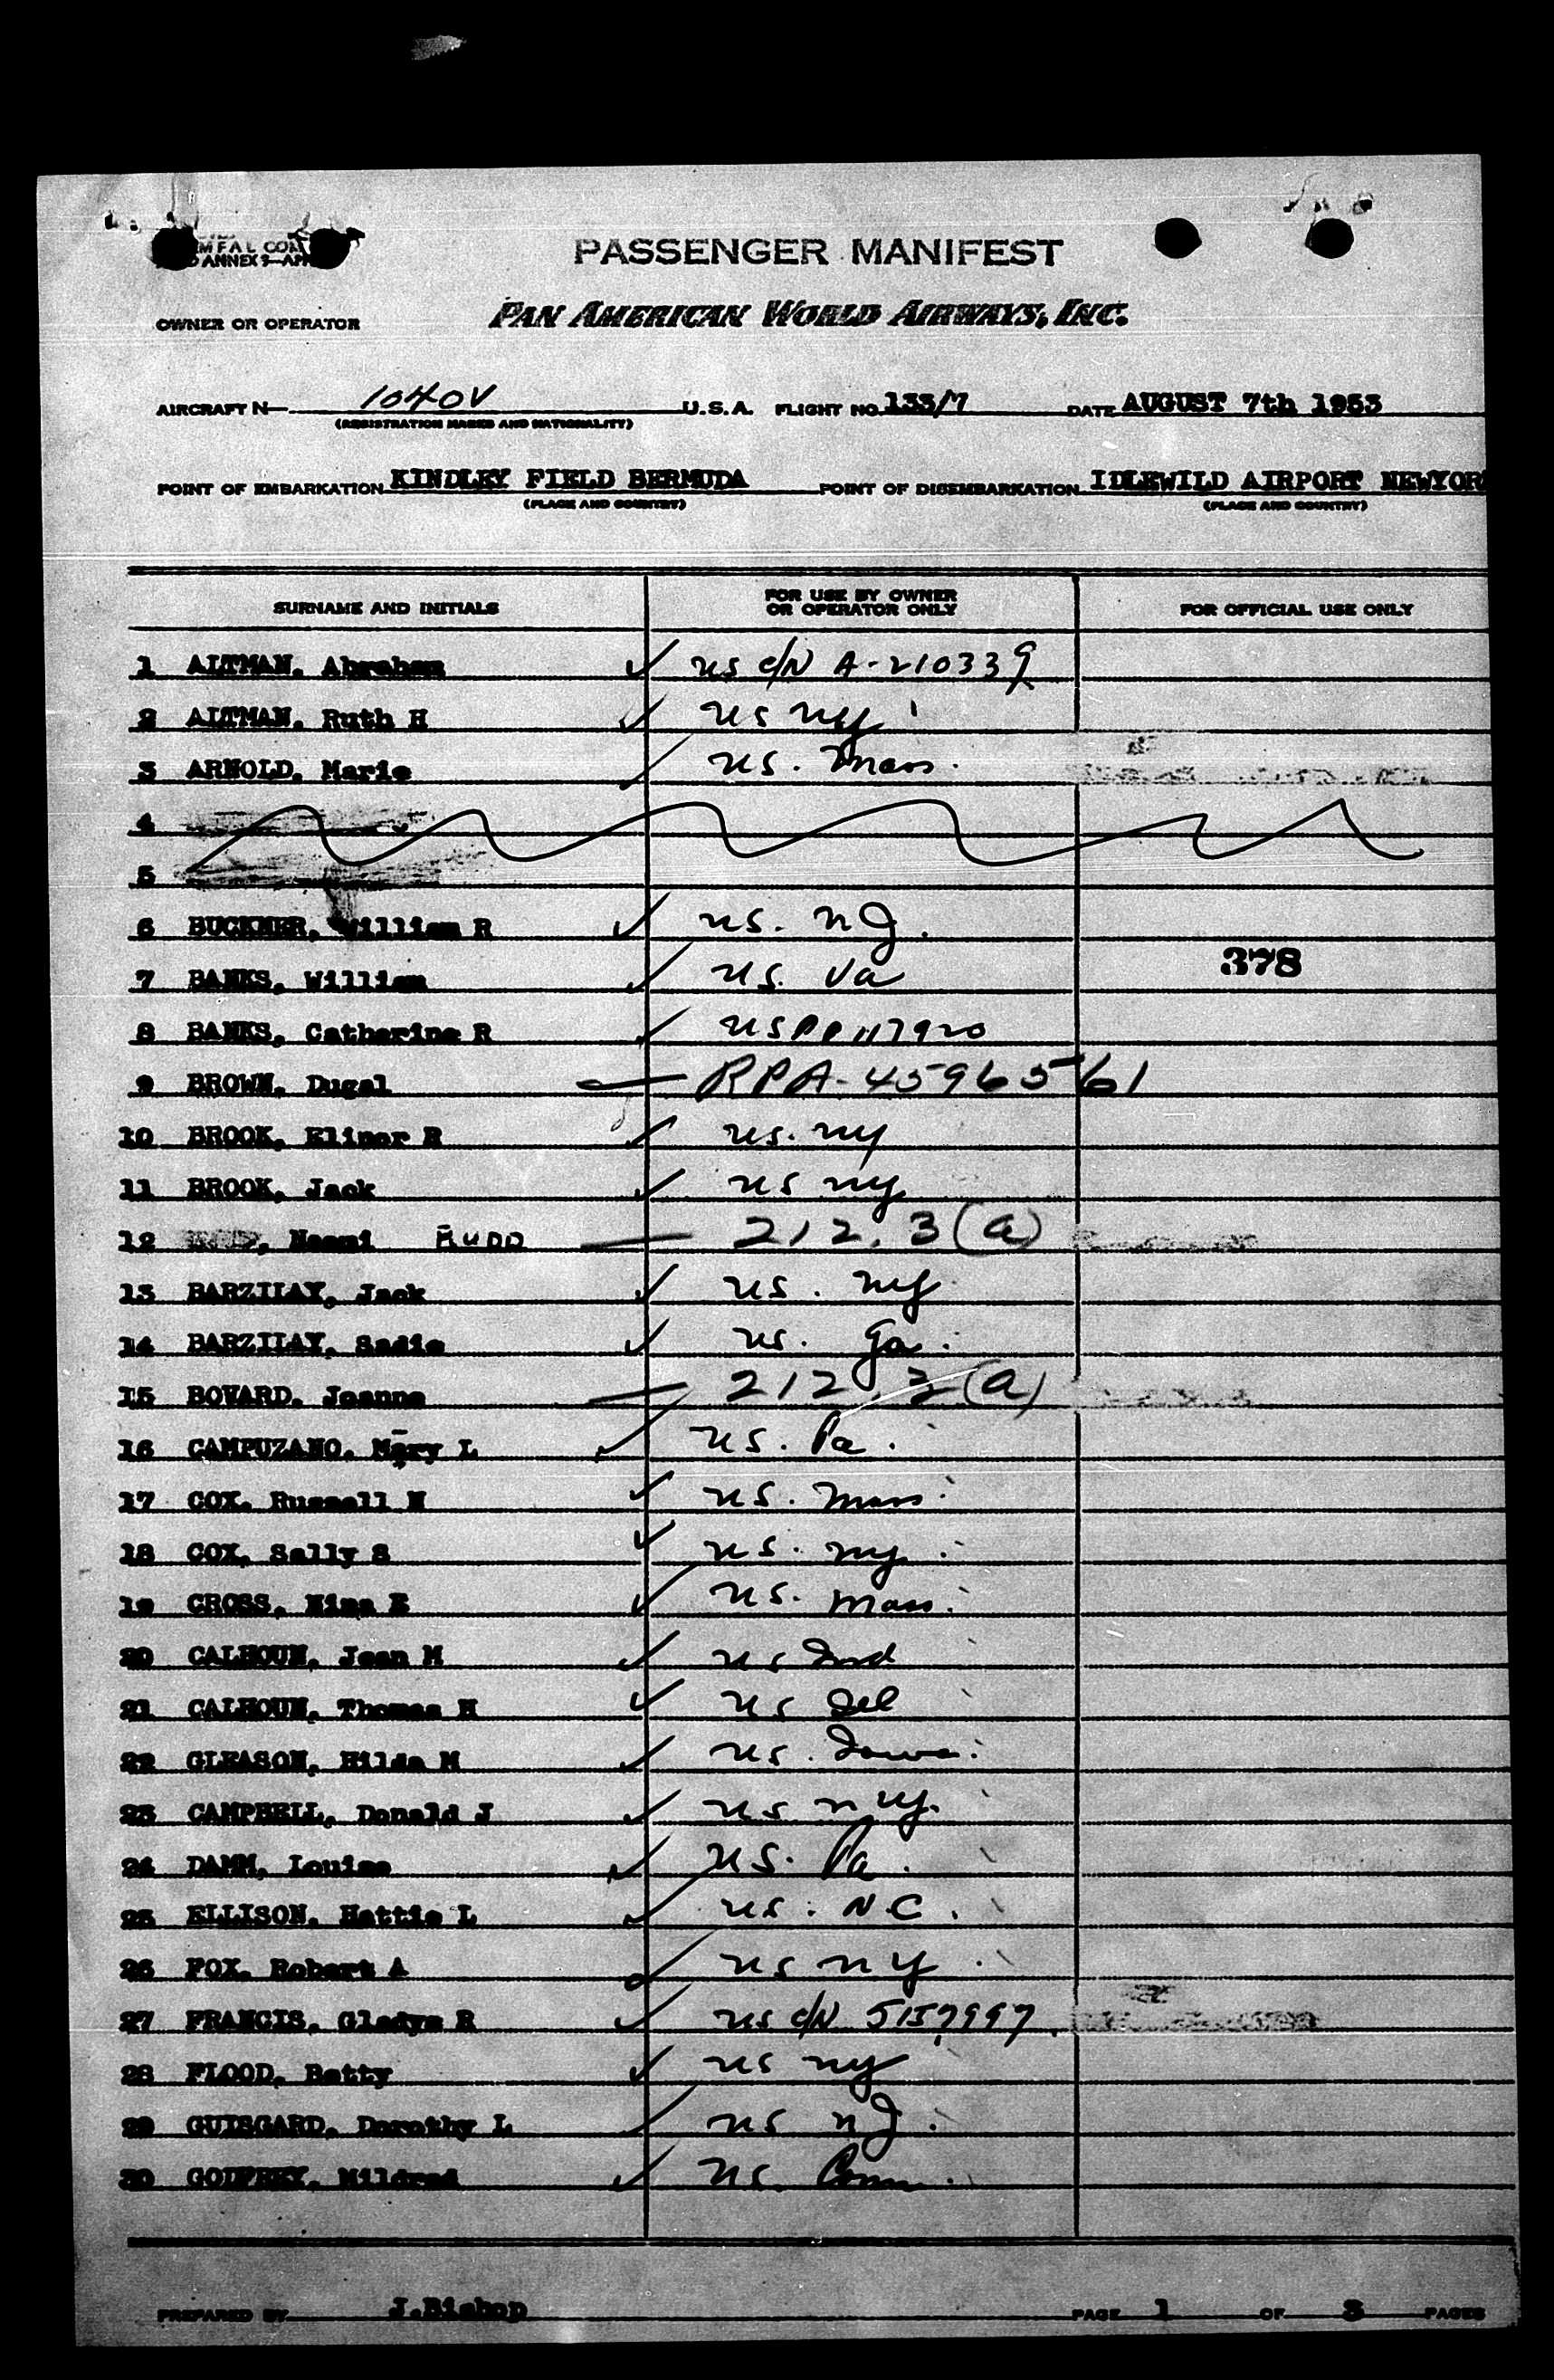 PASSENGER MANIFEST
OWNER OR OPERATOR PAN AMERICAN WORLD AIRWAYS, INC.
AIRCRAFT N- 1040V U.S.A. FLIGHT NO. 133/7 DATE AUGUST 7th 1953
(REGISTRATION MARKS AND NATIONALITY)
POINT OF EMBARKATION KINDLEY FIELD BERMUDA POINT OF DISEMBARKATION IDLEWILD AIRPORT NEWYOR
(PLACE AND COUNTRY) (PLACE AND COUNTRY)
SURNAME AND INITIALS FOR USE BY OWNER OR OPERATOR ONLY FOR OFFICIAL USE ONLY
1 ALTMAN, Abraham ✓ US c/N A-210339
2 ALTMAN, Ruth H ✓ US NY
3 ARNOLD, Marie ✓ US. Mass.
4
5
6 BUCKNER, William R ✓ US. NJ.
378
7 BANKS, William ✓ US. Va
8 BANKS, Catherine R ✓ US PP 117920
9 BROWN, Dugal RPA-45965/61
10 BROOK, Elinor B ✓ US. NY
11 BROOK, Jack ✓ US NY
12 , Naomi RUDD 212.3(a)
13 BARZILAY, Jack ✓ US. NY
14 BARZILAY, Sadie ✓ US. Ga.
15 BOVARD, Joanne 212.3(a)
16 CAMPUZANO, Mary L ✓ US. Pa.
17 COX, Russell N ✓ US. Mass.
18 COX, Sally S ✓ US. NY.
19 CROSS, Nina E ✓ US. Mass.
20 CALHOUN, Jean M ✓ US Ind
21 CALHOUN, Thomas H ✓ US Del
22 GLEASON, Hilda M ✓ US. Iowa.
23 CAMPBELL, Donald J ✓ US NY.
24 DAMM, Louise ✓ US. Pa.
25 ELLISON, Hattie L ✓ US. N.C.
26 FOX, Robert A ✓ US NY.
27 FRANCIS, Gladys R ✓ US c/N 5157997
28 FLOOD, Betty ✓ US NY
29 GUISGARD, Dorothy L ✓ US NJ.
30 GODFREY, Mildred ✓ US. Conn.
PREPARED BY J.Bishop PAGE 1 OF 3 PAGES